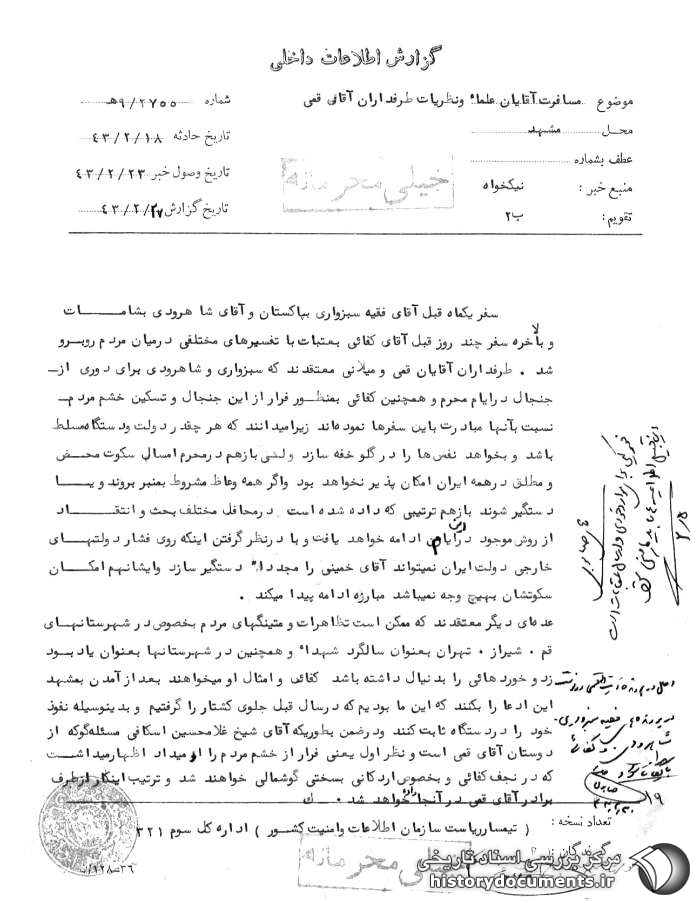 گزارش اطلاعات داخلی
موضوع مسافرت آقایان علماء ونظریات طرفداران آقای قمی
محل مشهد
عطف بشماره
منبع خبر : نیکخواه
تقویم : ب۲
شماره ۹/۲۷۵۵هـ
تاریخ حادثه ۴۳/۲/۱۸
تاریخ وصول خبر ۴۳/۲/۲۳
تاریخ گزارش ۴۳/۲/۲۷
خیلی محرمانه
سفر یکماه قبل آقای فقیه سبزواری بپاکستان و آقای شاهرودی بشامات
و بالاخره سفر چند روز قبل آقای کفائی بعتبات با تفسیرهای مختلفی درمیان مردم روبرو
شد . طرفداران آقایان قمی و میلانی معتقدند که سبزواری و شاهرودی برای دوری از
جنجال درایام محرم و همچنین کفائی بمنظور فرار از این جنجال و تسکین خشم مردم
نسبت بآنها مبادرت باین سفرها نموده‌اند زیرامیدانند که هر چقدر دولت ودستگاه مسلط
باشد و بخواهد نفس‌ها را در گلو خفه سازد ولتی بازهم درمحرم امسال سکوت محض
و مطلق در همه ایران امکان پذیر نخواهد بود واگر همه وعاظ مشروط بمنبر بروند و یا
دستگیر شوند بازهم ترتیبی که داده شده است درمحافل مختلف بحث و انتقاد
از روش موجود درایام این ادامه خواهد یافت و با درنظر گرفتن اینکه روی فشار دولتهای
خارجی دولت ایران نمیتواند آقای خمینی را مجدداً دستگیر سازد وایشانهم امکان
سکوتشان بهیچ وجه نمیباشد مبارزه ادامه پیدا میکند .
عده‌ای دیگر معتقدند که ممکن است تظاهرات و متینگهای مردم بخصوص در شهرستانهای
قم . شیراز . تهران بعنوان سالگرد شهداء و همچنین در شهرستانها بعنوان یاد بود
زد و خوردهائی را بدنبال داشته باشد کفائی و امثال او میخواهند بعد از آمدن بمشهد
این ادعا را بکنند که این ما بودیم که درسال قبل جلوی کشتار را گرفتیم و بدینوسیله نفوذ
خود را دردستگاه ثابت کنند ودرضمن بطوریکه آقای شیخ غلامحسین اسکافی مسئله‌گوکه از
دوستان آقای قمی است و نظر اول یعنی فرار از خشم مردم را او میداد اظهارمیداشت
که در نجف کفائی و بخصوص اردکانی بسختی گوشمالی خواهند شد و ترتیب اینکار از طرف
برادر آقای قمی در آنجا داده خواهد شد . ك
تعداد نسخه :
( تیمسار ریاست سازمان اطلاعات وامنیت کشور ) اداره کل سوم ۳۲۱
خیلی محرمانه
مرکز بررسی اسناد تاریخی
historydocuments.ir